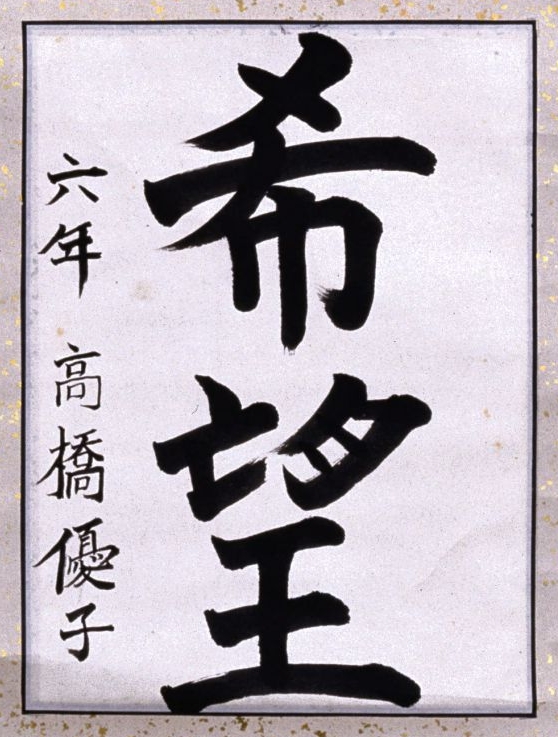 希望
六年 高橋優子